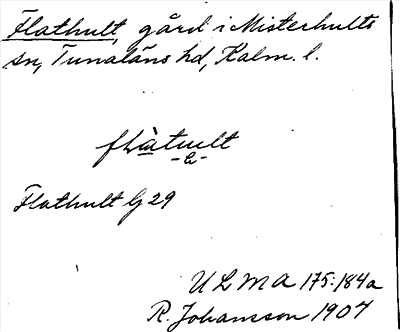 Flathult, gård i Misterhults
sn, Tunaläns hd, Kalm. l.
Flathult G 29
ULMA 175:184a
R. Johansson 1907